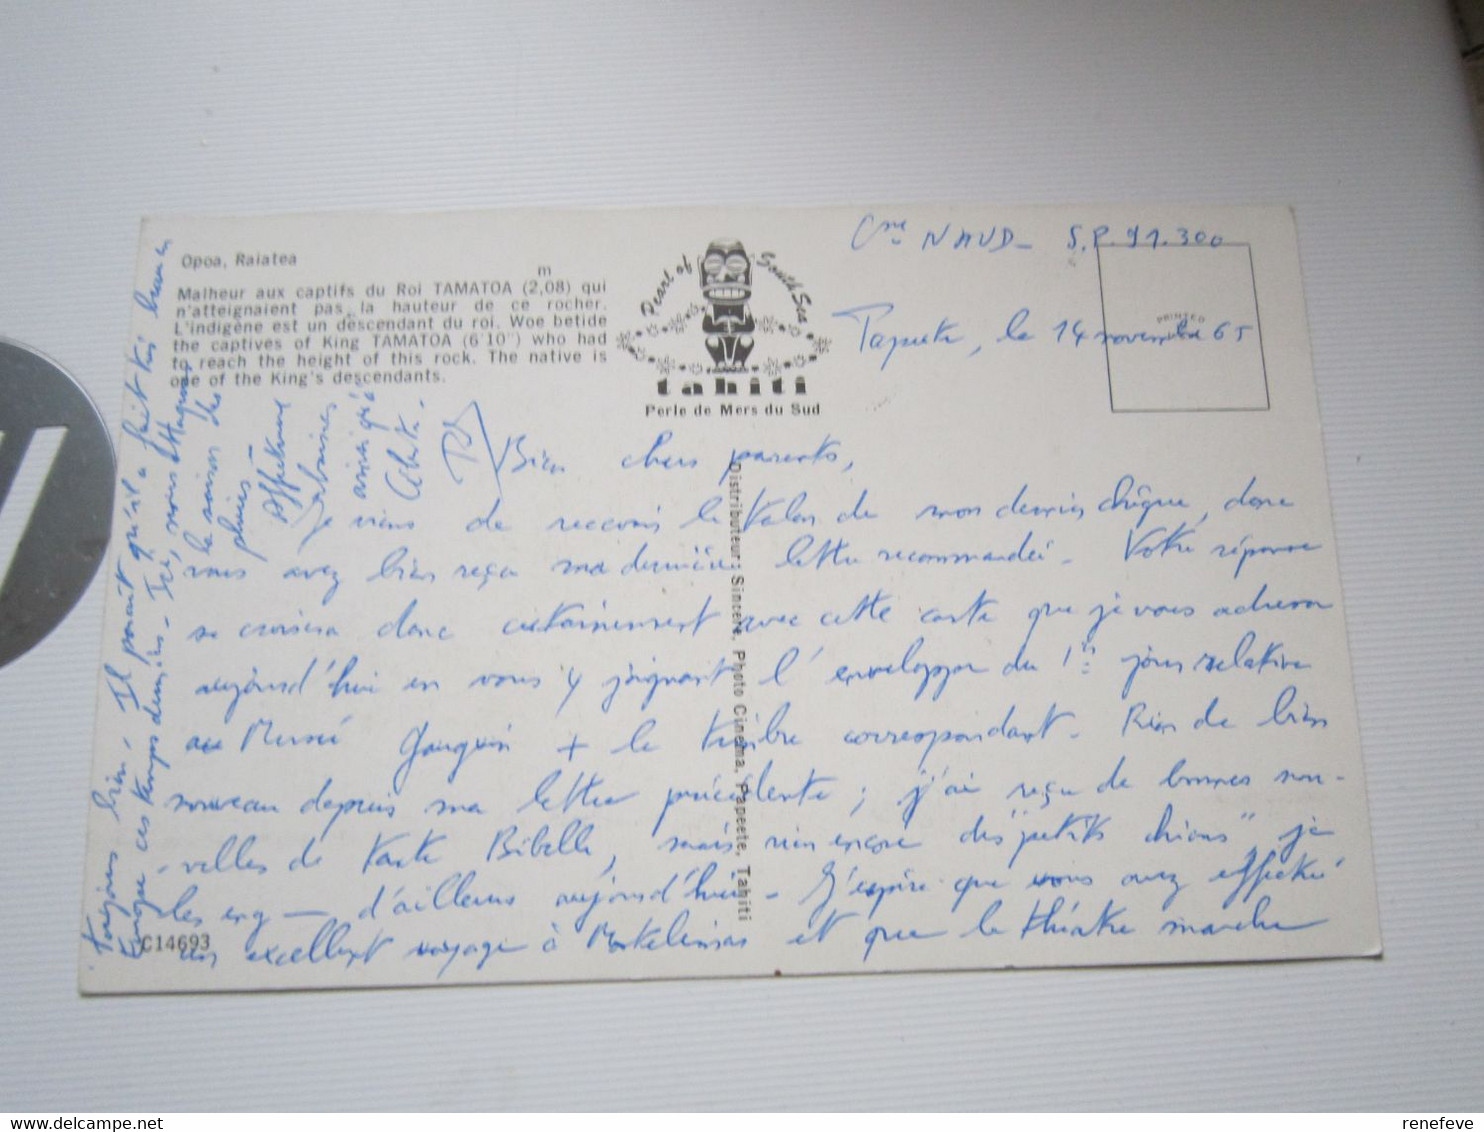 Cne NAUD - S.P. 91.300
Opoa, Raiatea
m
Malheur aux captifs du Roi TAMATOA (2,08) qui
n'atteignaient pas la hauteur de ce rocher.
L'indigène est un descendant du roi. Woe betide
the captives of King TAMATOA (6'10") who had
to reach the height of this rock. The native is
one of the King's descendants.
Pearl of South Sea
tahiti
Perle de Mers du Sud
PRINTED
Papeete, le 14 novembre 65
Bien chers parents,
Je viens de recevoir le talon de mon dernier chèque, donc
vous avez bien reçu ma dernière lettre recommandée. Votre réponse
se croisera donc certainement avec cette carte que je vous adresse
aujourd'hui en vous y joignant l'enveloppe du 1er jour relative
au Musée Gauguin + le timbre correspondant. Rien de bien
nouveau depuis ma lettre précédente ; j'ai reçu de bonnes nou-
-velles de tante Bibelle, mais rien encore des "petits chiens", je
les eng - d'ailleurs aujourd'hui - J'espère que vous avez effectué
un excellent voyage à et que le théâtre marche
toujours bien. Il parait qu'il a fait très beau en
Europe ces temps derniers - Ici, nous attaquons
la saison des
pluies -
Affectueuses
ainsi qu'à
Distributeur: Sincère, Photo Cinéma, Papeete, Tahiti
C14693
renefeve